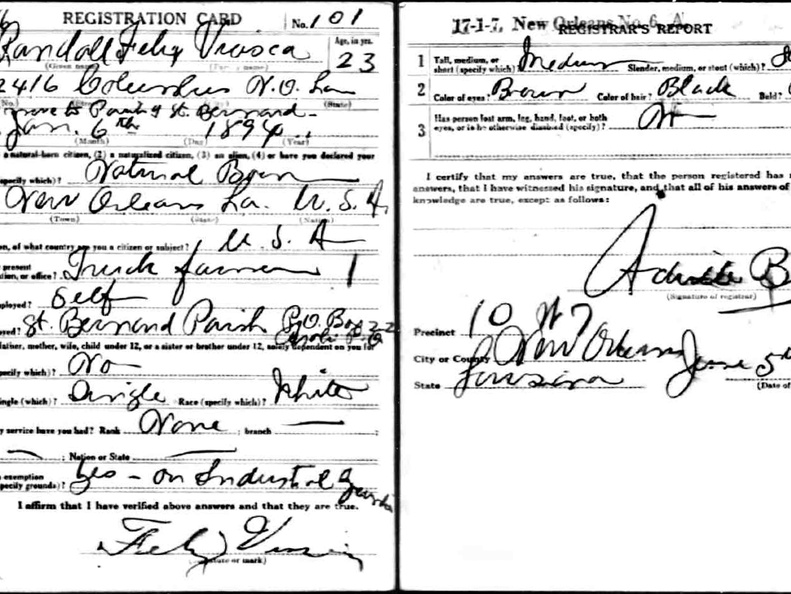 REGISTRATION CARD No. 101
Randall Felix Viosca Age, in yrs. 23
(Given name) (Family name)
2416 Columbus N.O. La
(No.) (State)
move to Parish of St. Bernard
Jan. 6th 1894
(Month) (Day) (Year)
a natural-born citizen, (2) a naturalized citizen, (3) an alien, (4) or have you declared your
specify which)? Natural Born
New Orleans La. U.S.A.
(Town) (State) (Nation)
en, of what country are you a citizen or subject? U S A
present
tion, or office? Truck farmer 1
ployed? Self
yed? St. Bernard Parish P.O. Box 22
father, mother, wife, child under 12, or a sister or brother under 12, solely dependent on you for
specify which)? No
ingle (which)? Single Race (specify which)? White
y service have you had? Rank None ; branch —
— ; Nation or State —
exemption
pecify grounds)? Yes - on Industrial
I affirm that I have verified above answers and that they are true.
Felix
(Signature or mark)
17-1-7. New Orleans No. 6. A
REGISTRAR'S REPORT
1 Tall, medium, or
short (specify which)? Medium Slender, medium, or stout (which)?
2 Color of eyes? Brown Color of hair? Black Bald?
3 Has person lost arm, leg, hand, foot, or both
eyes, or is he otherwise disabled (specify)? No
I certify that my answers are true, that the person registered has
answers, that I have witnessed his signature, and that all of his answers of
knowledge are true, except as follows:
B
(Signature of registrar)
Precinct 10 W 7
City or County New Orleans June 5th
State Louisiana (Date of